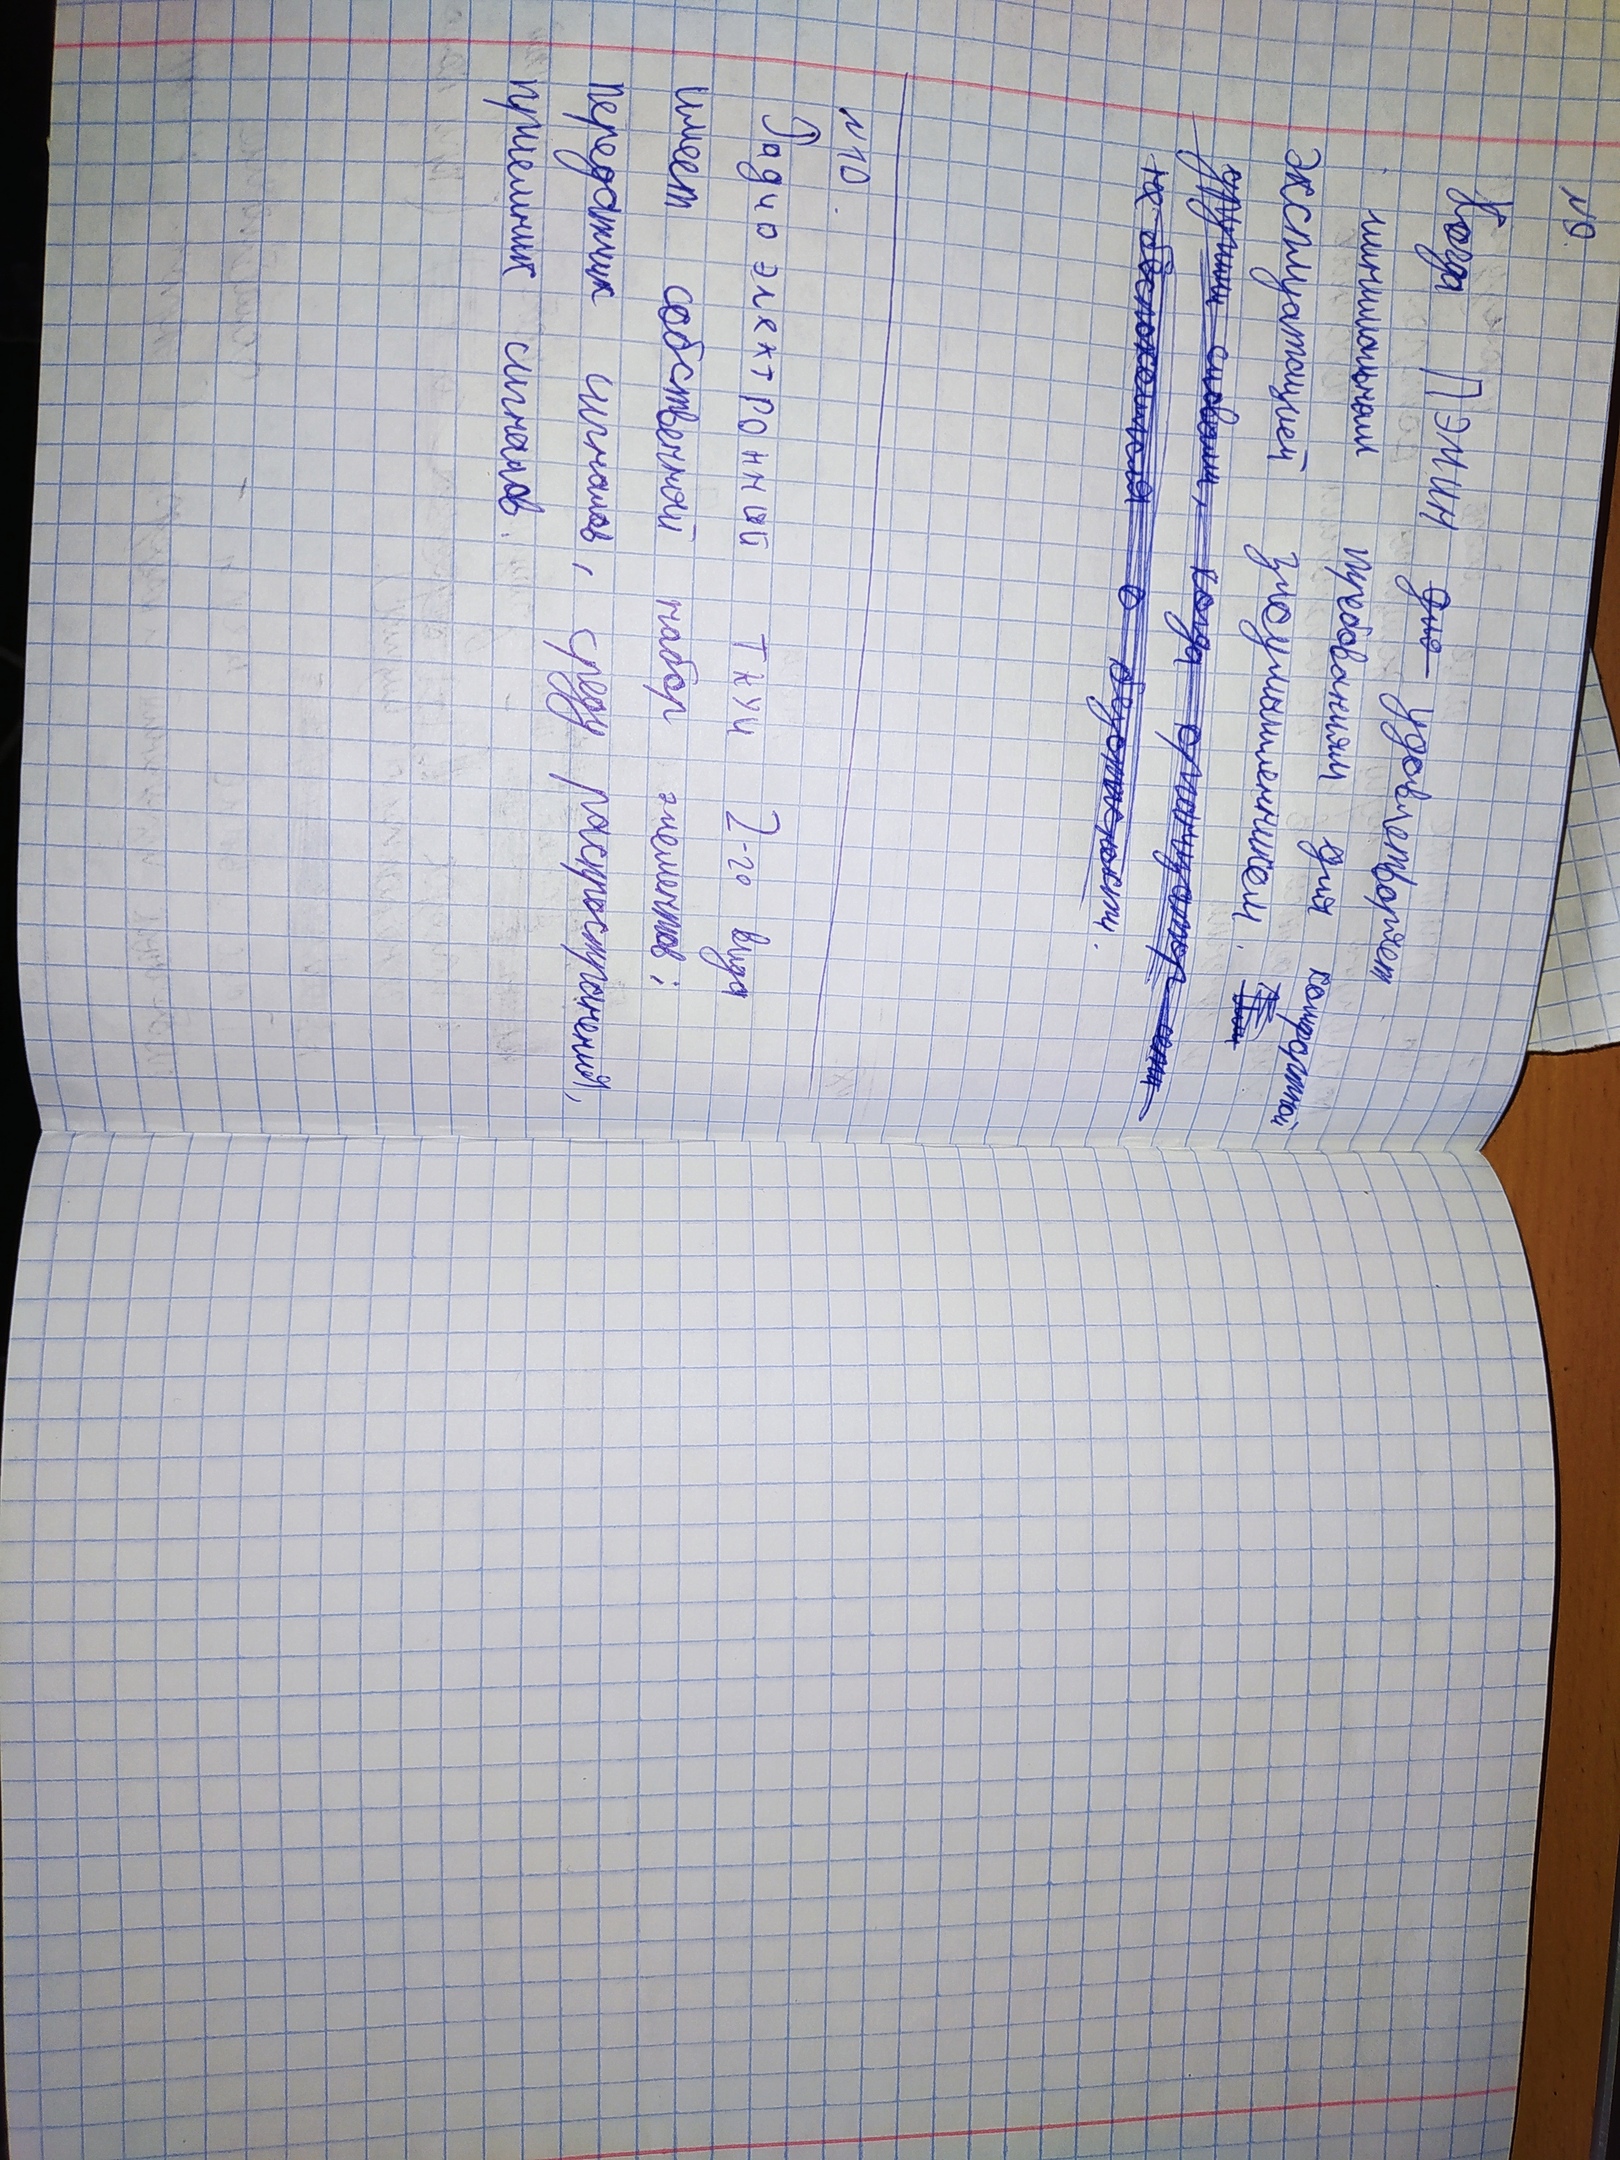 №9.
Когда ПЭМИН для удовлетворяет
минимальным требованиям для комфортной
эксплуатацией злоумышленником.
другими словами, когда
не обеспокоился о безопасности.
№10.
Радиоэлектронный ткуи 2-го вида
имеет собственный набор элементов;
передатчик сигналов, среду распространения,
приемник сигналов.